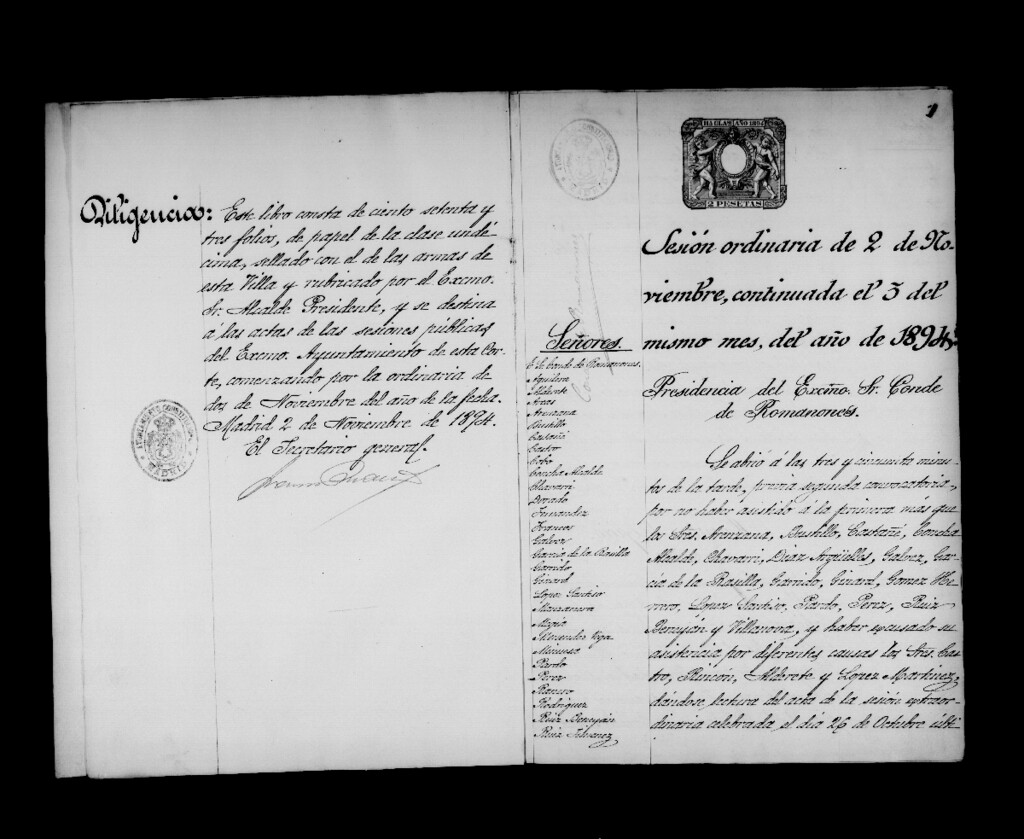 Diligencia: Este libro consta de ciento setenta y
tres folios, de papel de la clase undé-
cima, sellado con el de las armas de
esta Villa y rubricado por el Excmo.
Sr. Alcalde Presidente, y se destina
á las actas de las sesiones publicas
del Excmo. Ayuntamiento de esta Cor-
te, comenzando por la ordinaria de
dos de Noviembre del año de la fecha.
Madrid 2 de Noviembre de 1894.
El Secretario general.
1
HA CLASE AÑO 1894
2 PESETAS
Sesión ordinaria de 2 de No-
viembre, continuada el 3 del
mismo mes, del año de 1894.
Presidencia del Excmo. Sr. Conde
de Romanones.
Señores.
E. S. Conde de Romanones.
Aguilera
Alderete
Arias
Arenzana
Bustillo
Castañé
Castro
Cobo
Concha Alcalde
Chavarri
Dorado
Fernandez
Francos
Galvez
Garcia de la Rasilla
Garrido
Ginard
Lopez Santiso
Manzanera
Mejia
Menendez Vega
Minuesa
Pardo
Perez
Ranero
Rodriguez
Ruiz Beneyán
Ruiz
Se abrió á las tres y cincuenta minu-
tos de la tarde, previa segunda convocatoria,
por no haber asistido a la primera más que
los Sres. Arenzana, Bustillo, Castañé, Concha
Alcalde, Chavarri, Diaz Argüelles, Galvez, Gar-
cia de la Rasilla, Garrido, Ginard, Gomez He-
rrero, Lopez Santiso, Pardo, Perez, Ruiz
Beneyán y Villanova, y haber excusado su
asistencia por diferentes causas los Sres. Cas-
tro, Rincón, Alderete y Lopez Martinez,
dándose lectura del acta de la sesión extraor-
dinaria celebrada el dia 26 de Octubre últi-